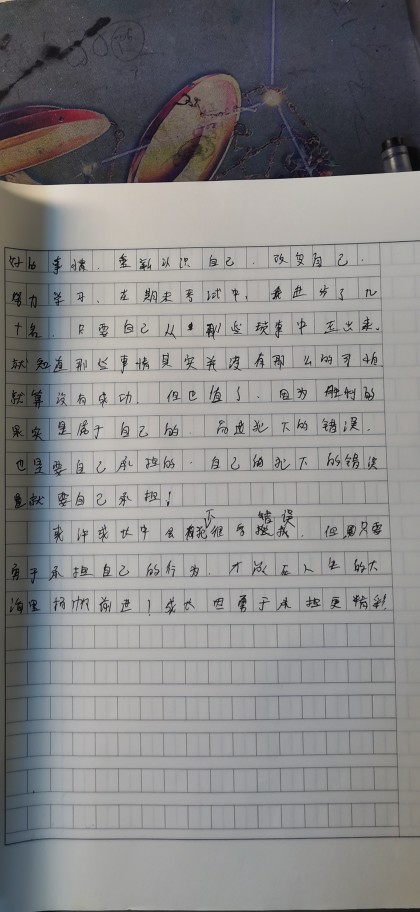 好的事情，重新认识自己，改变自己，
努力学习，在期末考试中，我进步了几
十名，只要自己从那些琐事中走出来，
就知道那些事情其实并没有那么的可怕
就算没有成功，但也值了，因为胜利的
果实是属于自己的，而这犯下的错误，
也是要自己承担的，自己的犯下的错误
就要自己承担！
或许成长中会有犯下很多错误，但只要
勇于承担自己的行为，才能在人生的大
海里扬帆前进！成长因勇于承担更精彩